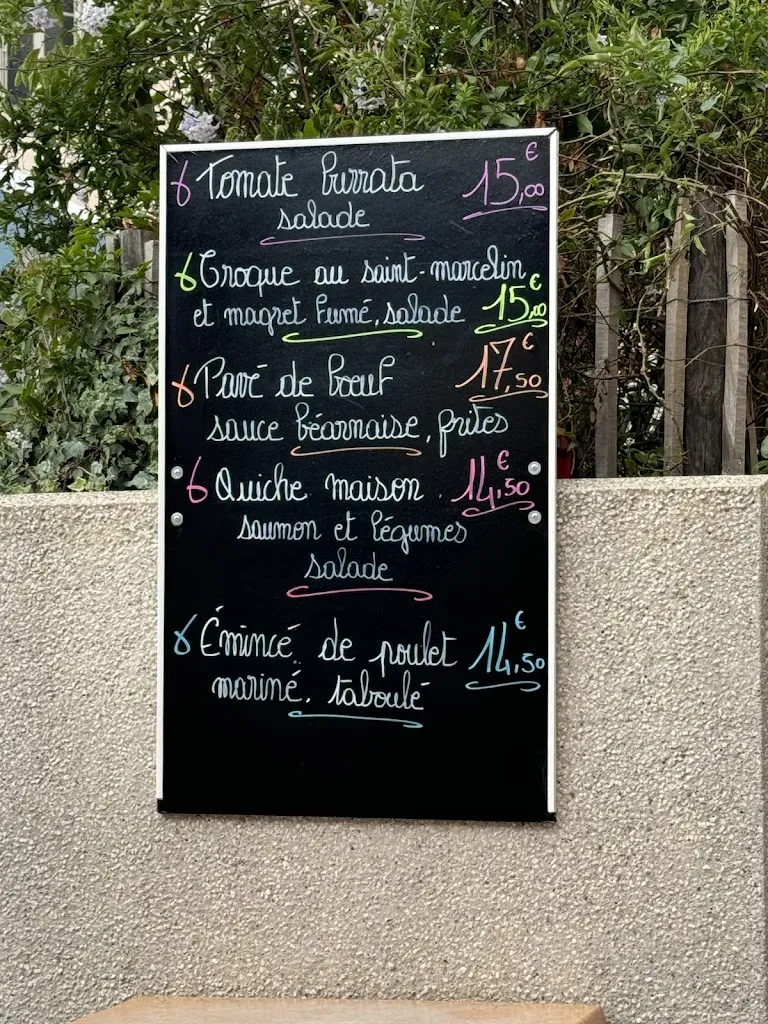 Tomate burrata 15,00€
salade
Croque au saint-marcelin
et magret fumé, salade 15,00€
Pavé de boeuf 17,50€
sauce béarnaise, frites
Quiche maison. 14,50€
saumon et légumes
salade
Émincé de poulet 14,50€
mariné, taboulé